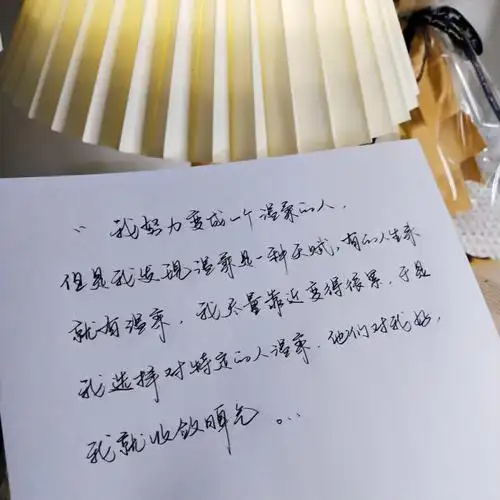 “ 我努力变成一个温柔的人.
但是我发现温柔是一种天赋, 有的人生来
就有温柔. 我尽量靠近变得很累. 于是
我选择对特定的人温柔. 他们对我好,
我就收敛脾气 。...